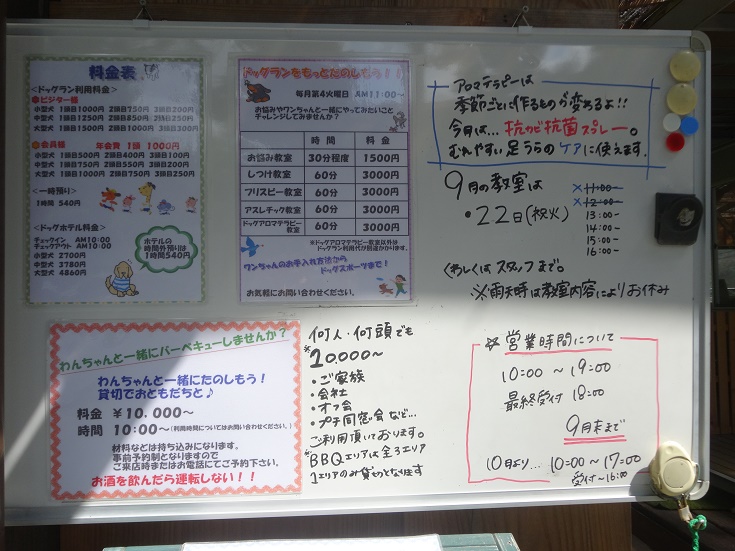 料金表
<ドッグラン利用料金>
ビジター様
小型犬 1頭目1000円 2頭目750円 3頭目200円
中型犬 1頭目1250円 2頭目850円 3頭目250円
大型犬 1頭目1500円 2頭目1000円 3頭目300円
会員様 年会費 1頭 1000円
小型犬 1頭目500円 2頭目400円 3頭目100円
中型犬 1頭目750円 2頭目550円 3頭目200円
大型犬 1頭目1000円 2頭目750円 3頭目250円
<一時預り>
1時間 540円
<ドッグホテル料金>
チェックイン AM10:00
チェックアウト AM10:00
小型犬 2700円
中型犬 3780円
大型犬 4860円
ホテルの
時間外預りは
1時間540円
ドッグランをもっとたのしもう!!
毎月第4火曜日 AM11:00~
お悩みやワンちゃんと一緒にやってみたいこと
チャレンジしてみませんか?
時間 料金
お悩み教室 30分程度 1500円
しつけ教室 60分 3000円
フリスビー教室 60分 3000円
アスレチック教室 60分 3000円
ドッグアロマテラピー教室 60分 3000円
※ドッグアロマテラピー教室以外は
ドッグラン利用代が別途かかります。
ワンちゃんのお手入れ方法から
ドッグスポーツまで!
お気軽にお問い合わせください。
アロマテラピーは
季節ごとに作るものが変わるよ!!
今月は…抗カビ抗菌スプレー。
むれやすい足うらのケアに使えます。
9月の教室は
・22日(祝火)
×11:00~
×12:00~
13:00~
14:00~
15:00~
16:00~
くわしくはスタッフまで。
※雨天時は教室内容によりお休み
わんちゃんと一緒にバーベキューしませんか?
わんちゃんと一緒にたのしもう!
貸切でおともだちと♪
料金 ¥10.000~
時間 10:00~(利用時間についてはお問い合わせください。)
材料などは持ち込みになります。
事前予約制となりますので
ご来店時またはお電話にてご予約下さい。
お酒を飲んだら運転しない!!
何人・何頭でも
*10,000~
・ご家族
・会社
・オフ会
・プチ同窓会など…
ご利用頂いております。
*BBQエリアは全3エリア
1エリアのみ貸切となります
☆営業時間について
10:00~19:00
最終受付 18:00
9月末まで
10月より… 10:00~17:00
受付~16:00